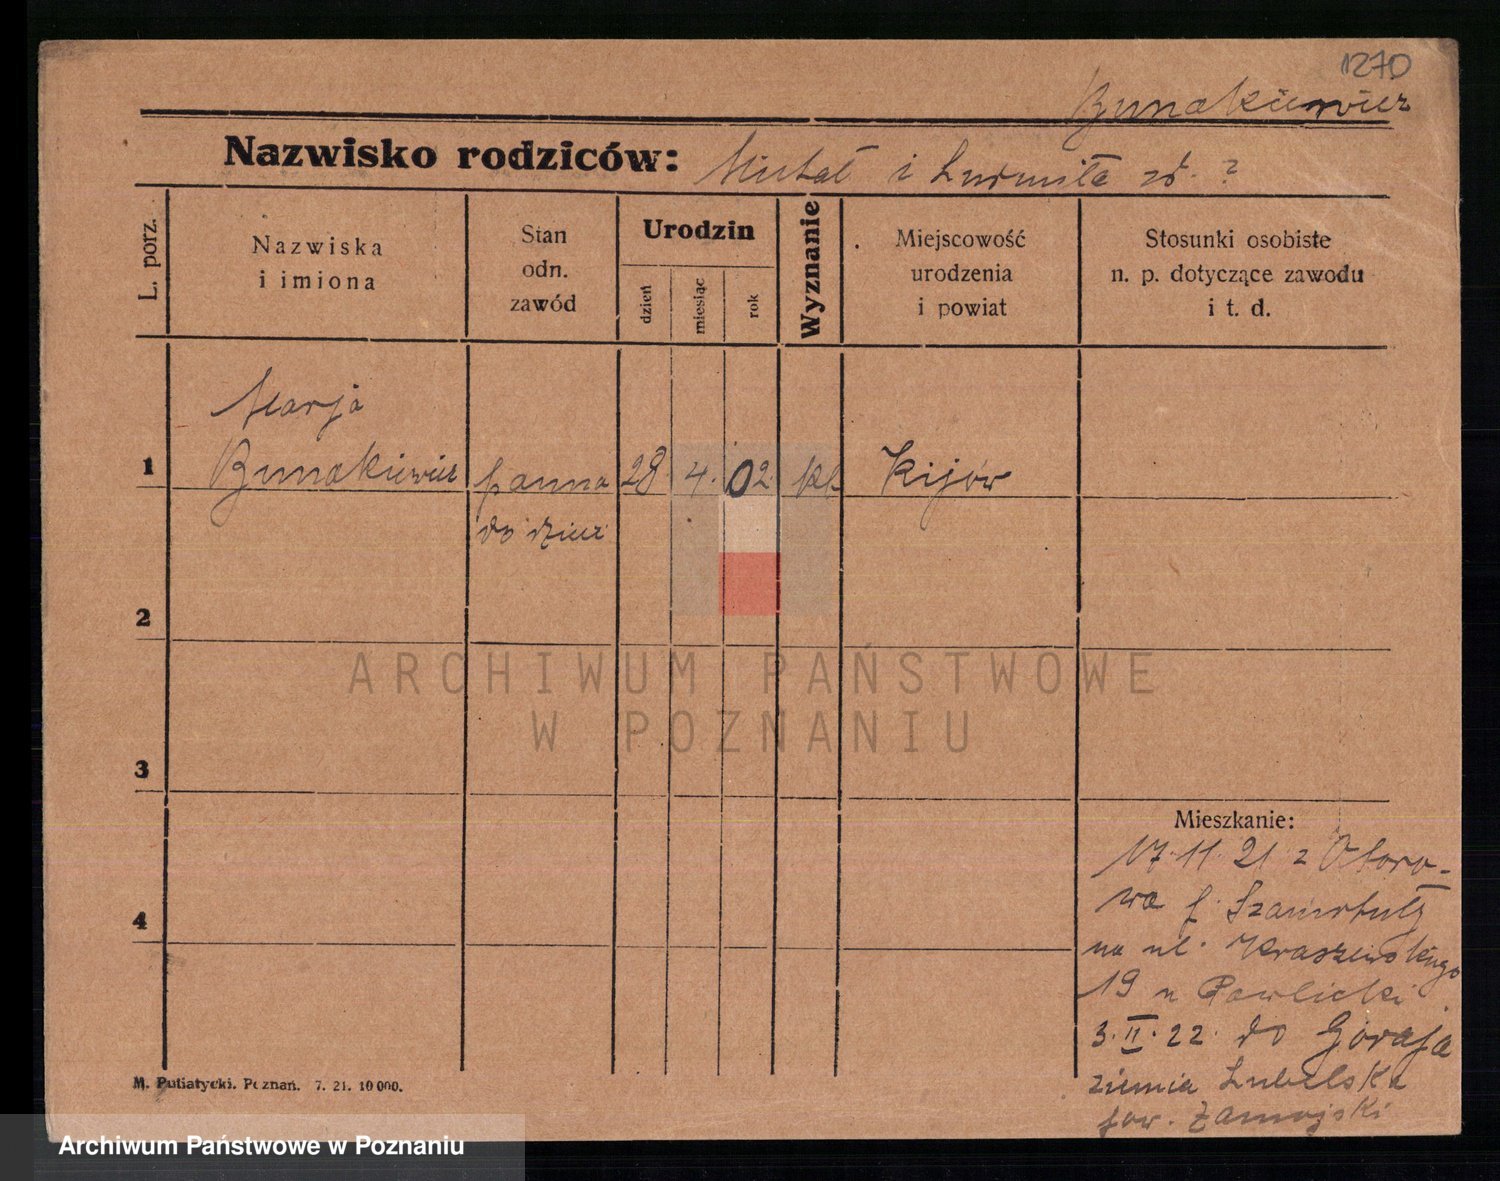 1270
Bunakiewicz
Nazwisko rodziców: Michał i Ludmiła zd. ?
L. porz.
Nazwiska
i imiona
Stan
odn.
zawód
Urodzin
dzień
miesiąc
rok
Wyznanie
Miejscowość
urodzenia
i powiat
Stosunki osobiste
n. p. dotyczące zawodu
i t. d.
Marja
1 Bunakiewicz panna 28 4. 02. kt. Kijów
do dzieci
2
ARCHIWUM PAŃSTWOWE
W POZNANIU
3
Mieszkanie:
17.11.21 z Otoro-
wa p. Szamotuły
na ul. Kraszewskiego
4
19 u Pawlicki
3.II.22. do Goraja
ziemia Lubelska
pow. Zamojski
M. Putiatycki. Poznań. 7. 21. 10 000.
Archiwum Państwowe w Poznaniu